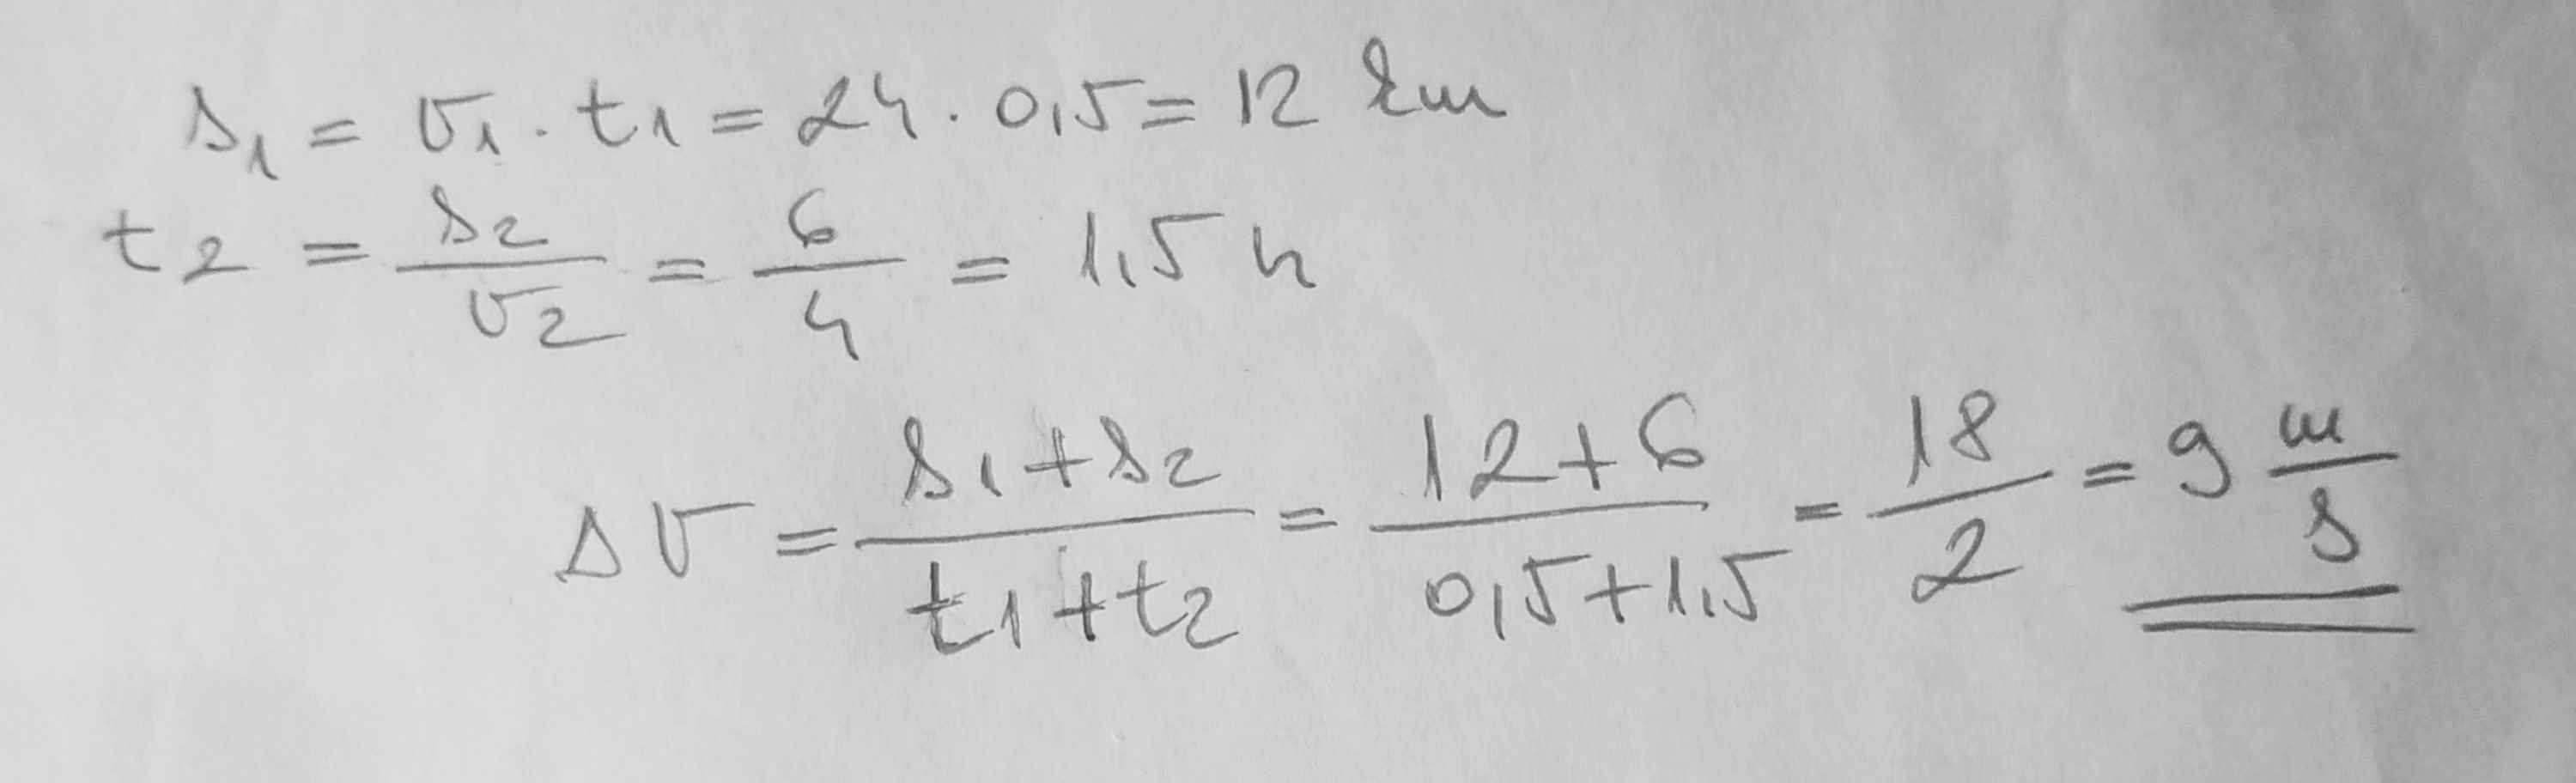 s₁ = v₁ · t₁ = 24 · 0,5 = 12 km
t₂ = s₂/v₂ = 6/4 = 1,5 h
Δv = (s₁+s₂)/(t₁+t₂) = (12+6)/(0,5+1,5) = 18/2 = 9 m/s